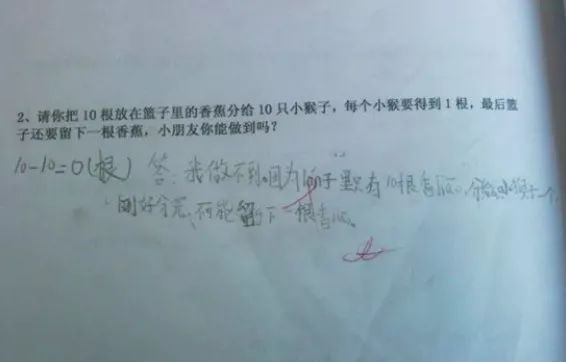 2、请你把10根放在篮子里的香蕉分给10只小猴子，每个小猴要得到1根，最后篮
子还要留下一根香蕉，小朋友你能做到吗？
10-10=0(根) 答：我做不到。因为lan子里只有10根香jiao。分给小猴子一个，
刚好分完，不能留下一根香jiao。